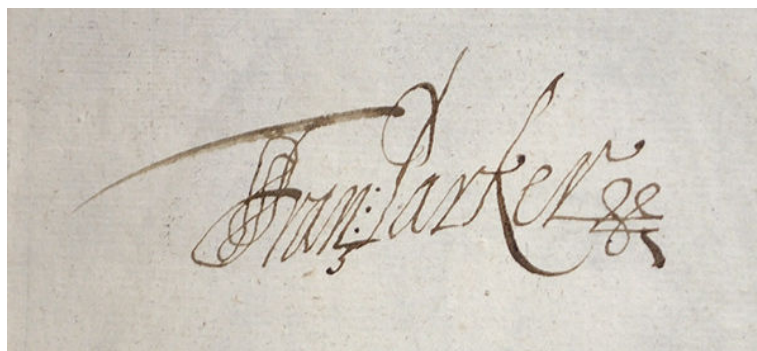 Fran: Parker